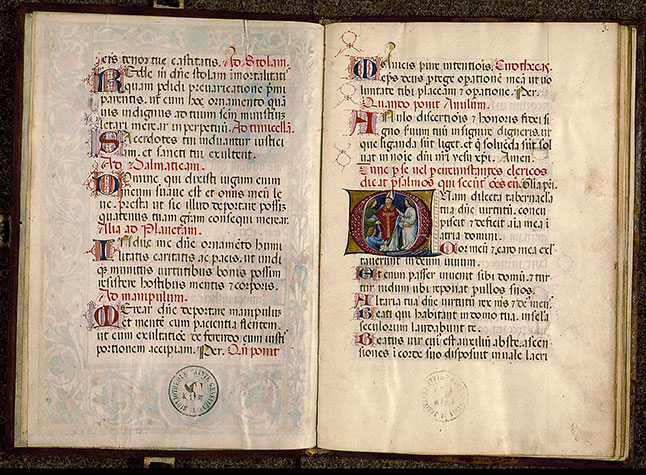 ctis tenor tue castitatis. Ad Stolam.
Redde mihi dñe stolam imortalitatis
quam pdidi prevaricatione pmi
parentis. ut cum hoc ornamento quã
vis indignus ad tuum sc̃m ministeriũ
letari merear in perpetuũ. Ad tunicellã.
Sacerdotes tui induantur iustici
am. et sancti tui exultent.
Ad Dalmaticam.
Domine qui dixisti iugum eum
meum suave est et onus meũ le
ve. presta ut sic illud deportare possim
quatenus tuam gram consequi merear.
Alia ad Planetam.
Indue me dñe ornamẽto humi
litatis caritatis ac pacis. ut undi
que munitus virtutibus bonis possim
resistere hostibus mentis et corporis.
Ad manipulum.
Merear dñe deportare manipulũ
et mente cum paciencia flentem
ut cum exultatiõe deferendo cum iustis
portionem accipiam. Per. Qñ ponit
intentiois, Euotheca
ceps protege opationẽ meã ut vo
luntate tibi placeam
Quando ponit Anulum.
Anulo discretiõis et honoris
gno
que liganda sũt liget. et q̃ solvẽda sũt sol
vat in noĩe dñi ñri yesu xp̃i. Amen.
Tunc p se vel p circumstantes clericos
dicat psalmos qui secunt̃
Quam dilecta tabernacla
tua dñe virtutũ. concu
piscit et deficit aĩa mea ĩ
atria domini.
Cor meũ et caro mea exl
taverunt in deum vivum.
Et enim passer invenit sibi domũ. et tur
tur nidum ubi reponat pullos suos.
Altaria tua dñe virtutũ rex mẽs et de' meus
Beati qui habitant in domo tua. in secla
seculorum laudabunt te.
Beatus vir cui' est auxiliũ abs te. ascen
siones ĩ corde suo disposuit in vale lacri